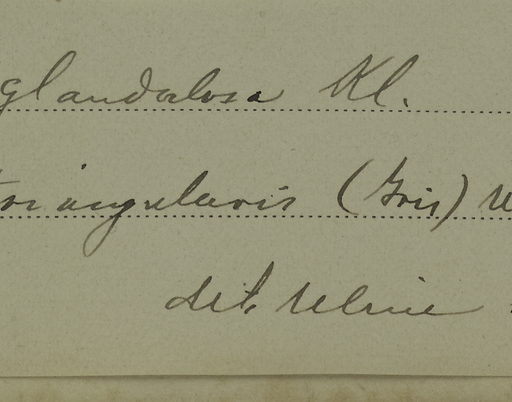 glandulosa Kl.
triangularis (Gris) U
det. Ulme